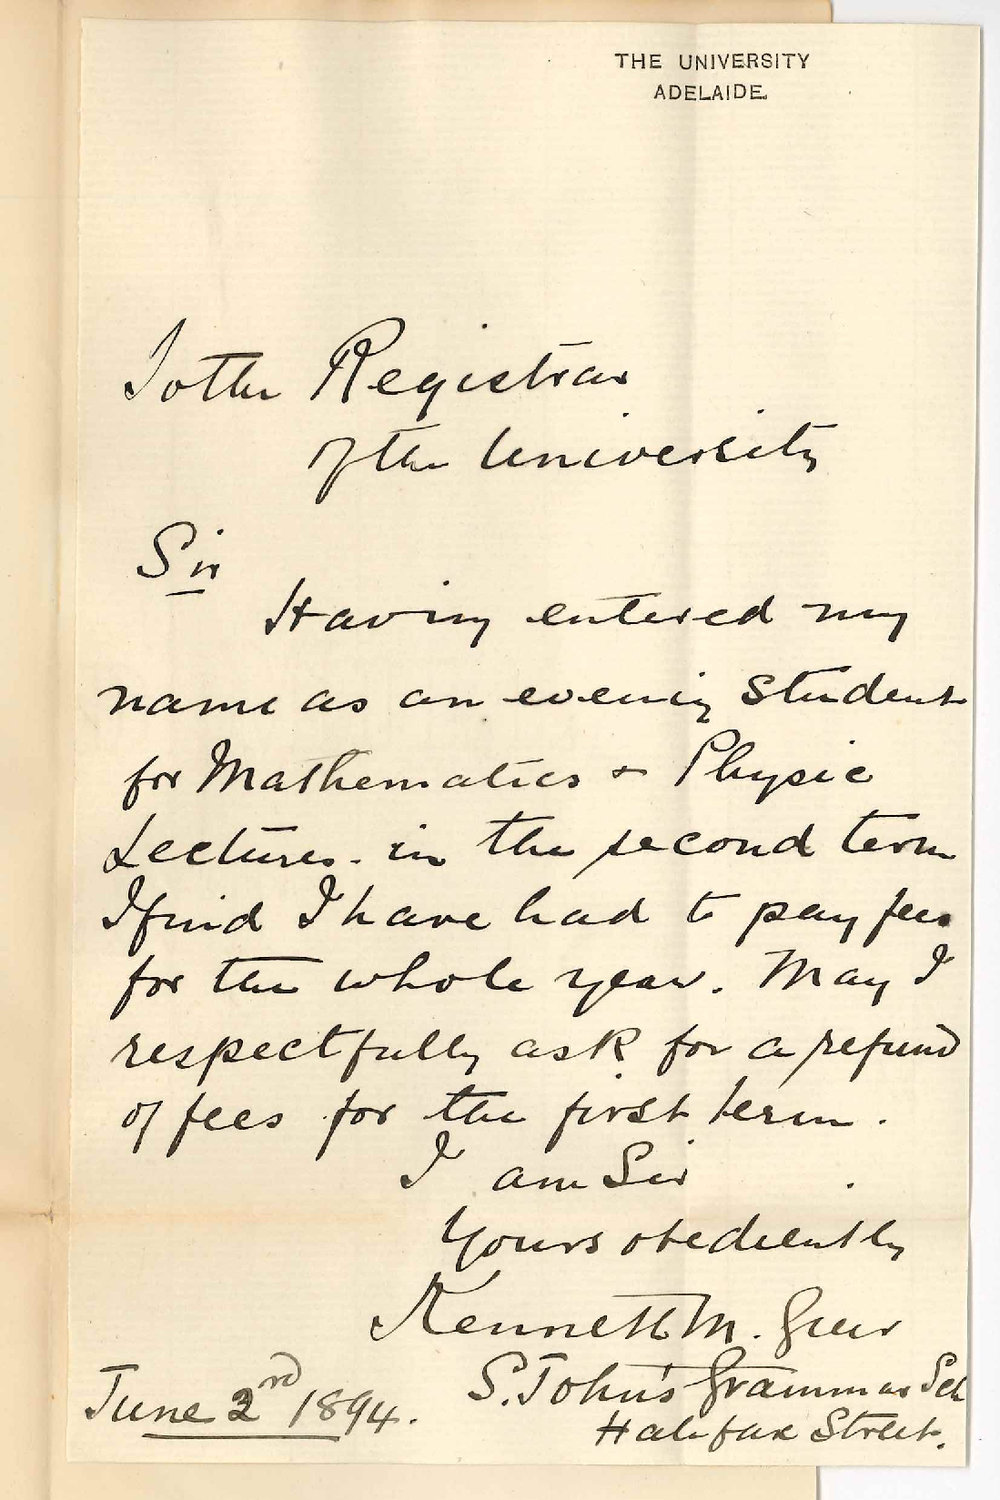 THE UNIVERSITY
ADELAIDE.
To the Registrar
of the University
Sir
Having entered my
name as an evening student
for Mathematics & Physic
Lectures. in the second term
I find I have had to pay fees
for the whole year. May I
respectfully ask for a refund
of fees for the first term.
I am Sir
Yours obediently
Kenneth M.
S. John's Grammar Sch
Halifax Street.
June 2nd 1894.